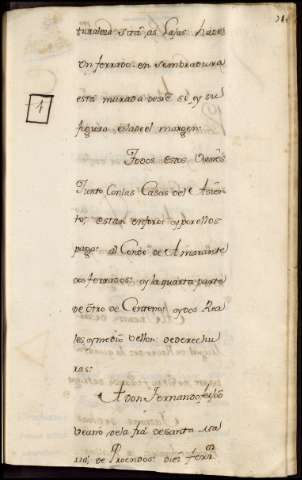 turaleza
un ferrado en sembradura
esta murada desde si, y su
figura es la del margen.
1
Todos estos vienes
Junto Con las Casas del Asien
to, estan en foros y por ellos
pago al Conde de Amarante
dos ferrados, y la quarta parte
de otro de Centeno, y dos Rea
les y medio vellon de derechu
ras.
A don Fernando
vecino de la fra de Santa Ma
ria de dies ferrs